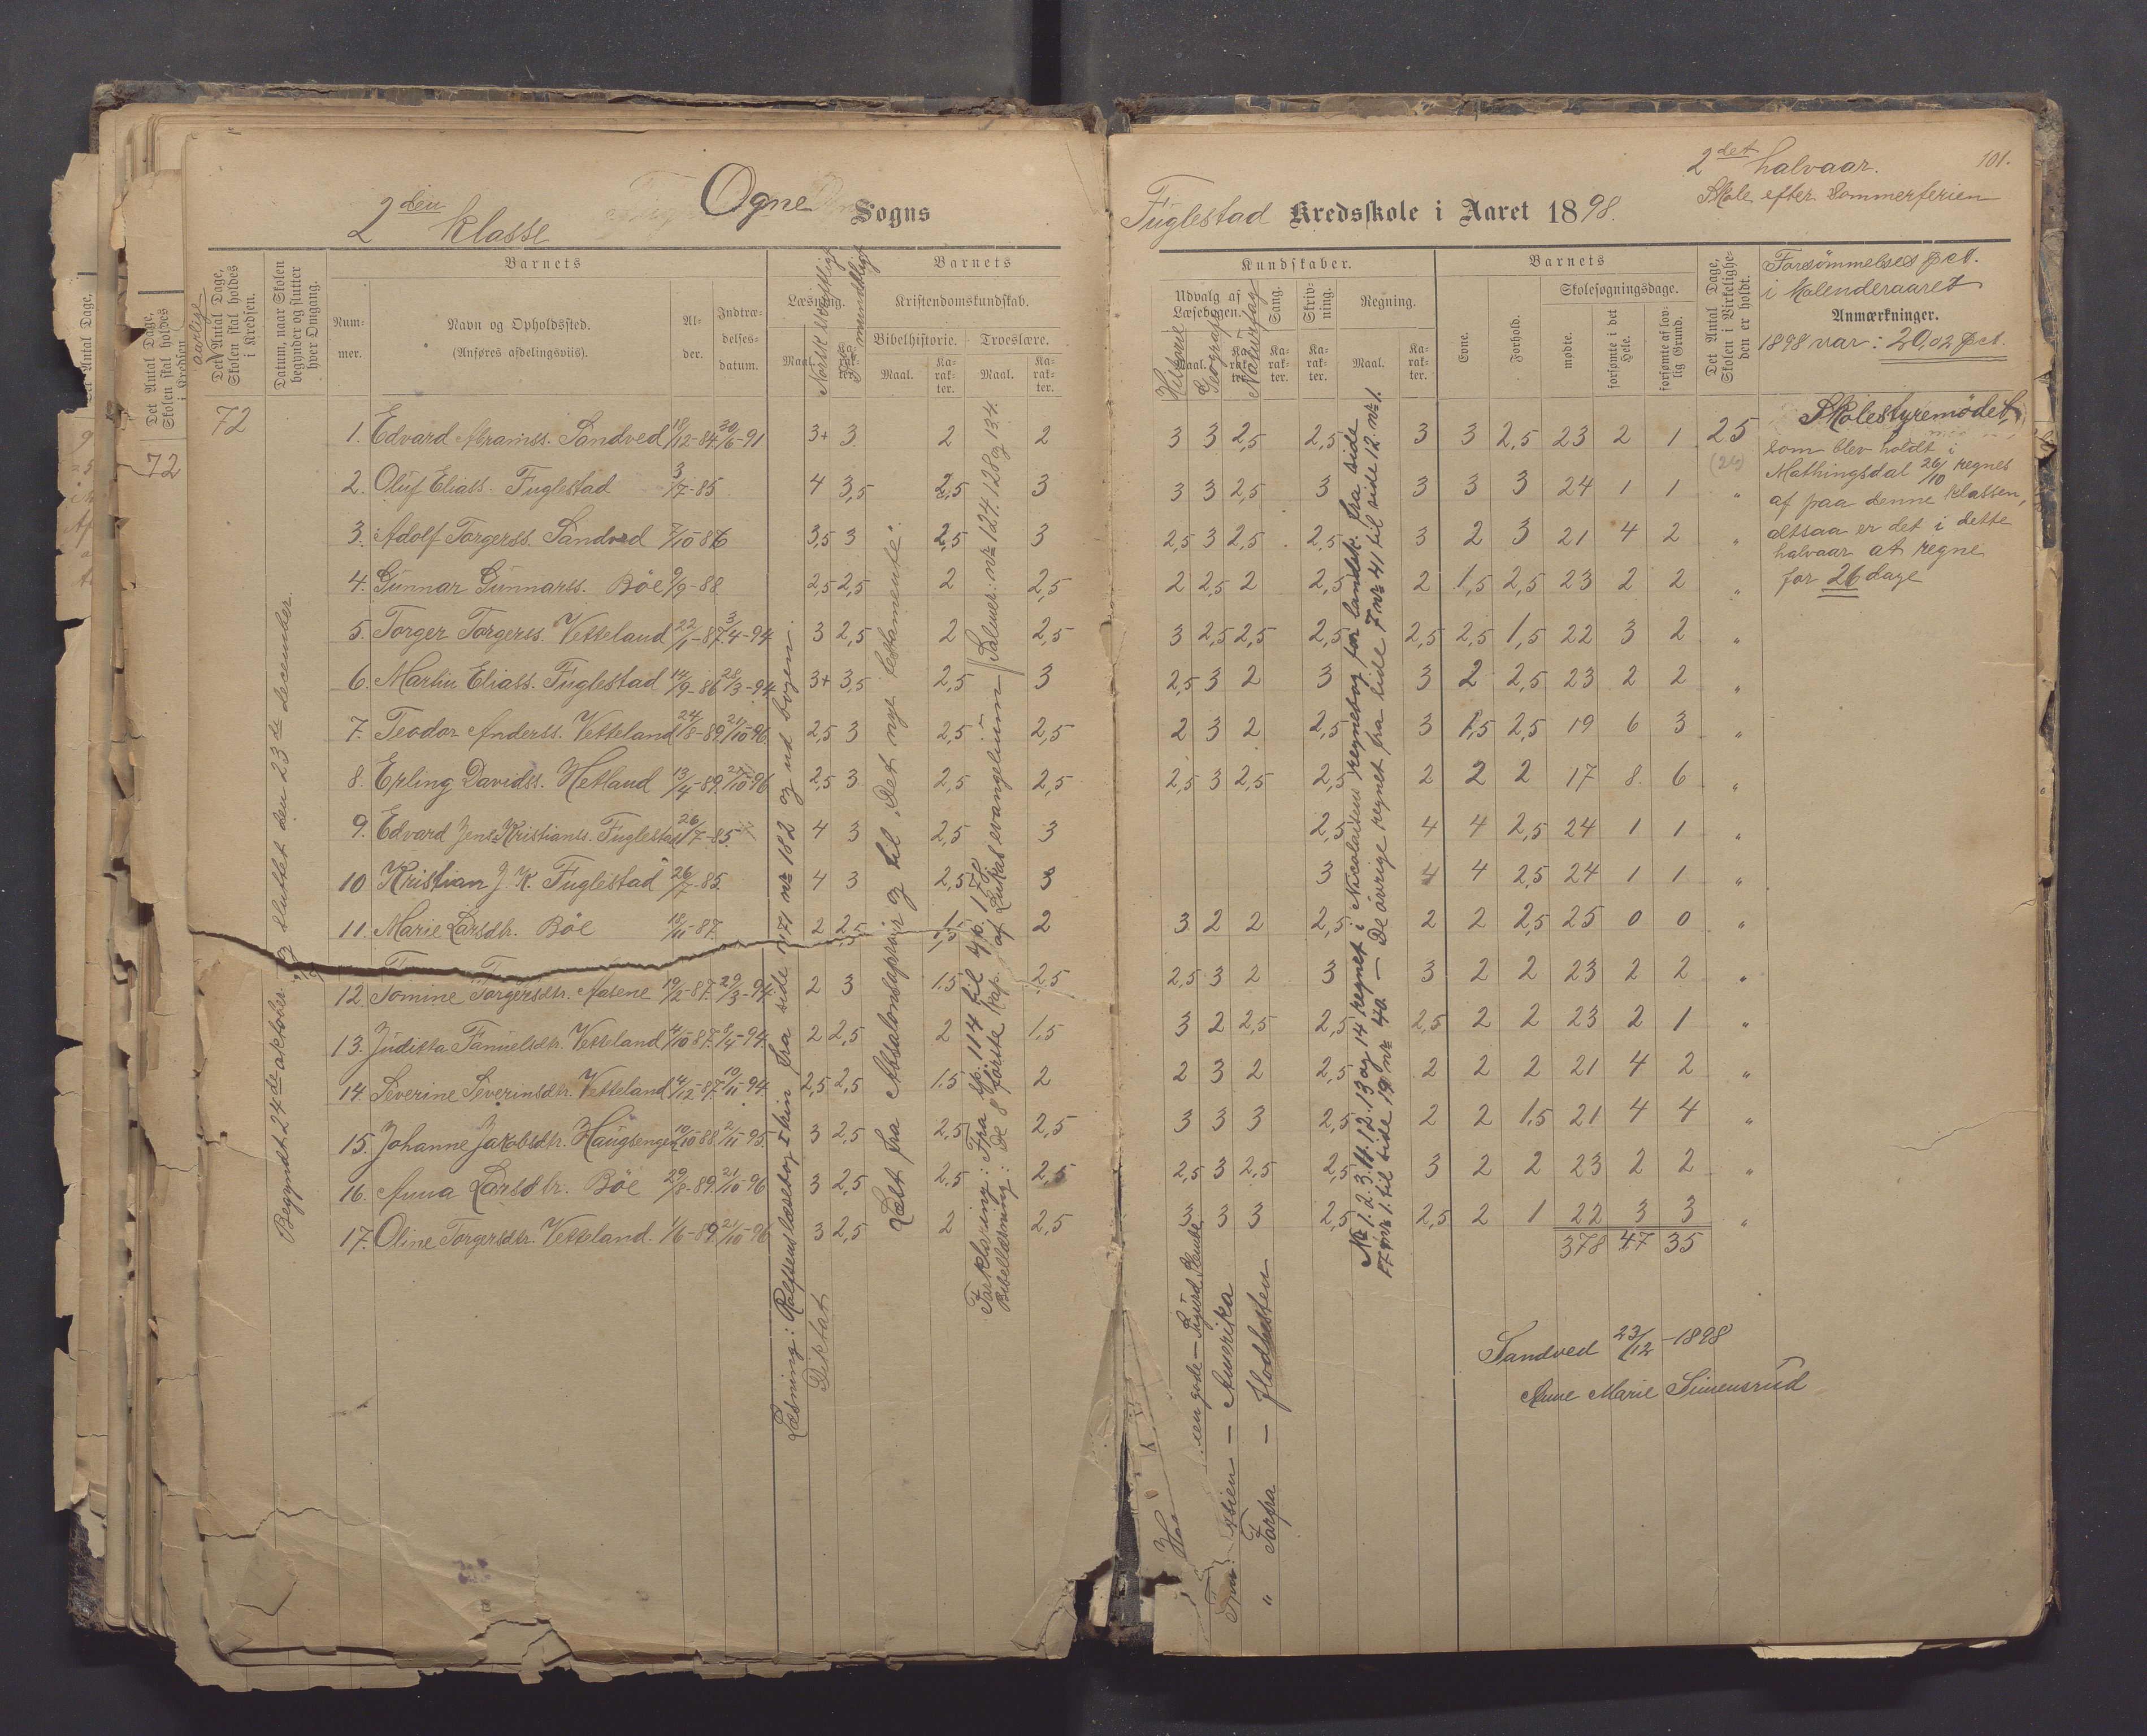 2den klasse
Ogne Sogns
Fuglestad Kredsskole i Aaret 1898.
2det halvaar.
Skole efter Sommerferien
101.
aarlige
Det Antal Dage, Skolen skal holdes i Kredsen.
Datum, naar Skolen begynder og slutter hver Omgang.
Barnets
Num-mer.
Navn og Opholdssted.
(Anføres afdelingsviis).
Al-der.
Indtræ-delses-datum.
Læsning.
Maal.
Norsk skriftligt
mundtligt
Barnets
Kristendomskundskab.
Bibelhistorie.
Maal.
Ka-rak-ter.
Troeslære.
Maal.
Ka-rak-ter.
Kundskaber.
Udvalg af Læsebogen.
Historie
Geografi
Naturfag
Maal.
Ka-rak-ter.
Sang.
Ka-rak-ter.
Skriv-ning.
Ka-rak-ter.
Regning.
Maal.
Ka-rak-ter.
Barnets
Evne.
Forhold.
Skolesøgningsdage.
mødte.
forsømte i det Hele.
forsømte af lov-lig Grund.
Det Antal Dage, Skolen i Virkelighe-den er holdt.
Forsømmelses pct.
i kalenderaaret
Anmærkninger.
1898 var: 20,02 pct.
72
1. Edvard Abramss. Sandved 18/12-84. 30/6-91 3+ 3 2 2 3 3 2,5 2,5 3 3 2,5 23 2 1 25
2. Oluf Eliass. Fuglestad 3/7-85 4 3,5 2,5 3 3 3 2,5 3 3 3 3 24 1 1 "
3. Adolf Torgerss. Sandved 7/10-86 3,5 3 2,5 3 2,5 3 2,5 2,5 3 2 3 21 4 2 "
4. Gunnar Gunnarss. Böe 9/9-88 2,5 2,5 2 2,5 2 2,5 2 2,5 2 1,5 2,5 23 2 2 "
5. Torger Torgerss. Vetteland 22/1-87. 3/4-94 3 2,5 2 2,5 3 2,5 2,5 2,5 2,5 2,5 1,5 22 3 2 "
6. Martin Eliass. Fuglestad 14/9-86 28/3-94 3+ 3,5 2,5 3 2,5 3 2 3 3 2 2,5 23 2 2 "
7. Teodor Anderss. Vetteland 24/8-89. 21/10-96 2,5 3 2,5 2,5 2 3 2 2,5 3 1,5 2,5 19 6 3 "
8. Erling Davidss. Hetland 13/4-89. 21/10-96 2,5 3 2,5 2,5 2,5 3 2,5 2,5 2 2 2 17 8 6 "
9. Edvard Jens Kristianss. Fuglestad 26/7-85. 4 3 2,5 3 2,5 4 4 2,5 24 1 1 "
10 Kristian J. K. Fuglestad 26/7-85 4 3 2,5 3 3 4 4 2,5 24 1 1 "
11. Marie Larsdtr. Böe 18/11-87. 2 2,5 1,5 2 3 2 2 2,5 2 2 2,5 25 0 0 "
12. Tomine Torgersdtr. Aasene 19/2-87. 29/3-94. 2 3 1.5 2,5 2,5 3 2 3 3 2 2 23 2 2 "
13. Juditta Fanuelsdtr. Vetteland 4/10-87. 9/4-94. 2 2,5 2 1.5 3 2 2,5 2,5 2,5 2 2 23 2 1 "
14. Severine Severinsdtr. Vetteland 4/12-87. 10/11-94 2,5 2,5 1.5 2 2 3 2 2,5 2 2 2 21 4 2 "
15. Johanne Jakobsdtr. Haugsenget 10/10-88. 2/11-95. 3 2,5 2,5 2,5 3 3 3 2,5 2 2 1,5 21 4 4 "
16. Anna Larsdtr. Böe 29/8-89. 21/10-96 3 2,5 2.5 2,5 2,5 3 2,5 2,5 3 2 2 23 2 2 "
17. Oline Torgersdtr. Vetteland. 1/6-89. 21/10-96 3 2,5 2 2,5 3 3 3 2,5 2,5 2 1 22 3 3 "
378 47 35
(26)
Skolestyremødet,
som blev holdt i
Mathingsdal 26/10 regnes
af paa denne klassen,
altsaa er det i dette
halvaar at regne
for 26 dage
Begyndt 24de oktober og sluttet den 23de december.
Læsning: Rolfsens læsebog I trin fra side 171 nr 182 og ud bogen.
Diktat
Læst fra Absalonsoprør og til "Det nye testamente".
Forklaring: Fra sp. 114 til sp. 178 Salmer: nr 124, 128 og 134.
Bibellæsning: De 8 første kap. af Lukas evangelium
gode – Sigurd Slembe
Fra – Amerika
" Forfra – flodhesten
Nr 1. 2. 3. 11. 12. 13 og 14 regnet i Nicolaisens regnebog for landsk. fra side
17 nr 1. til side 19 nr 40. – De øvrige regnet fra side 7 nr 41 til side 12. nr 1.
Sandved 23/12 –1898
Anne Marie Simensrud
Det Antal Dage, Skolen skal holdes i Kredsen
72